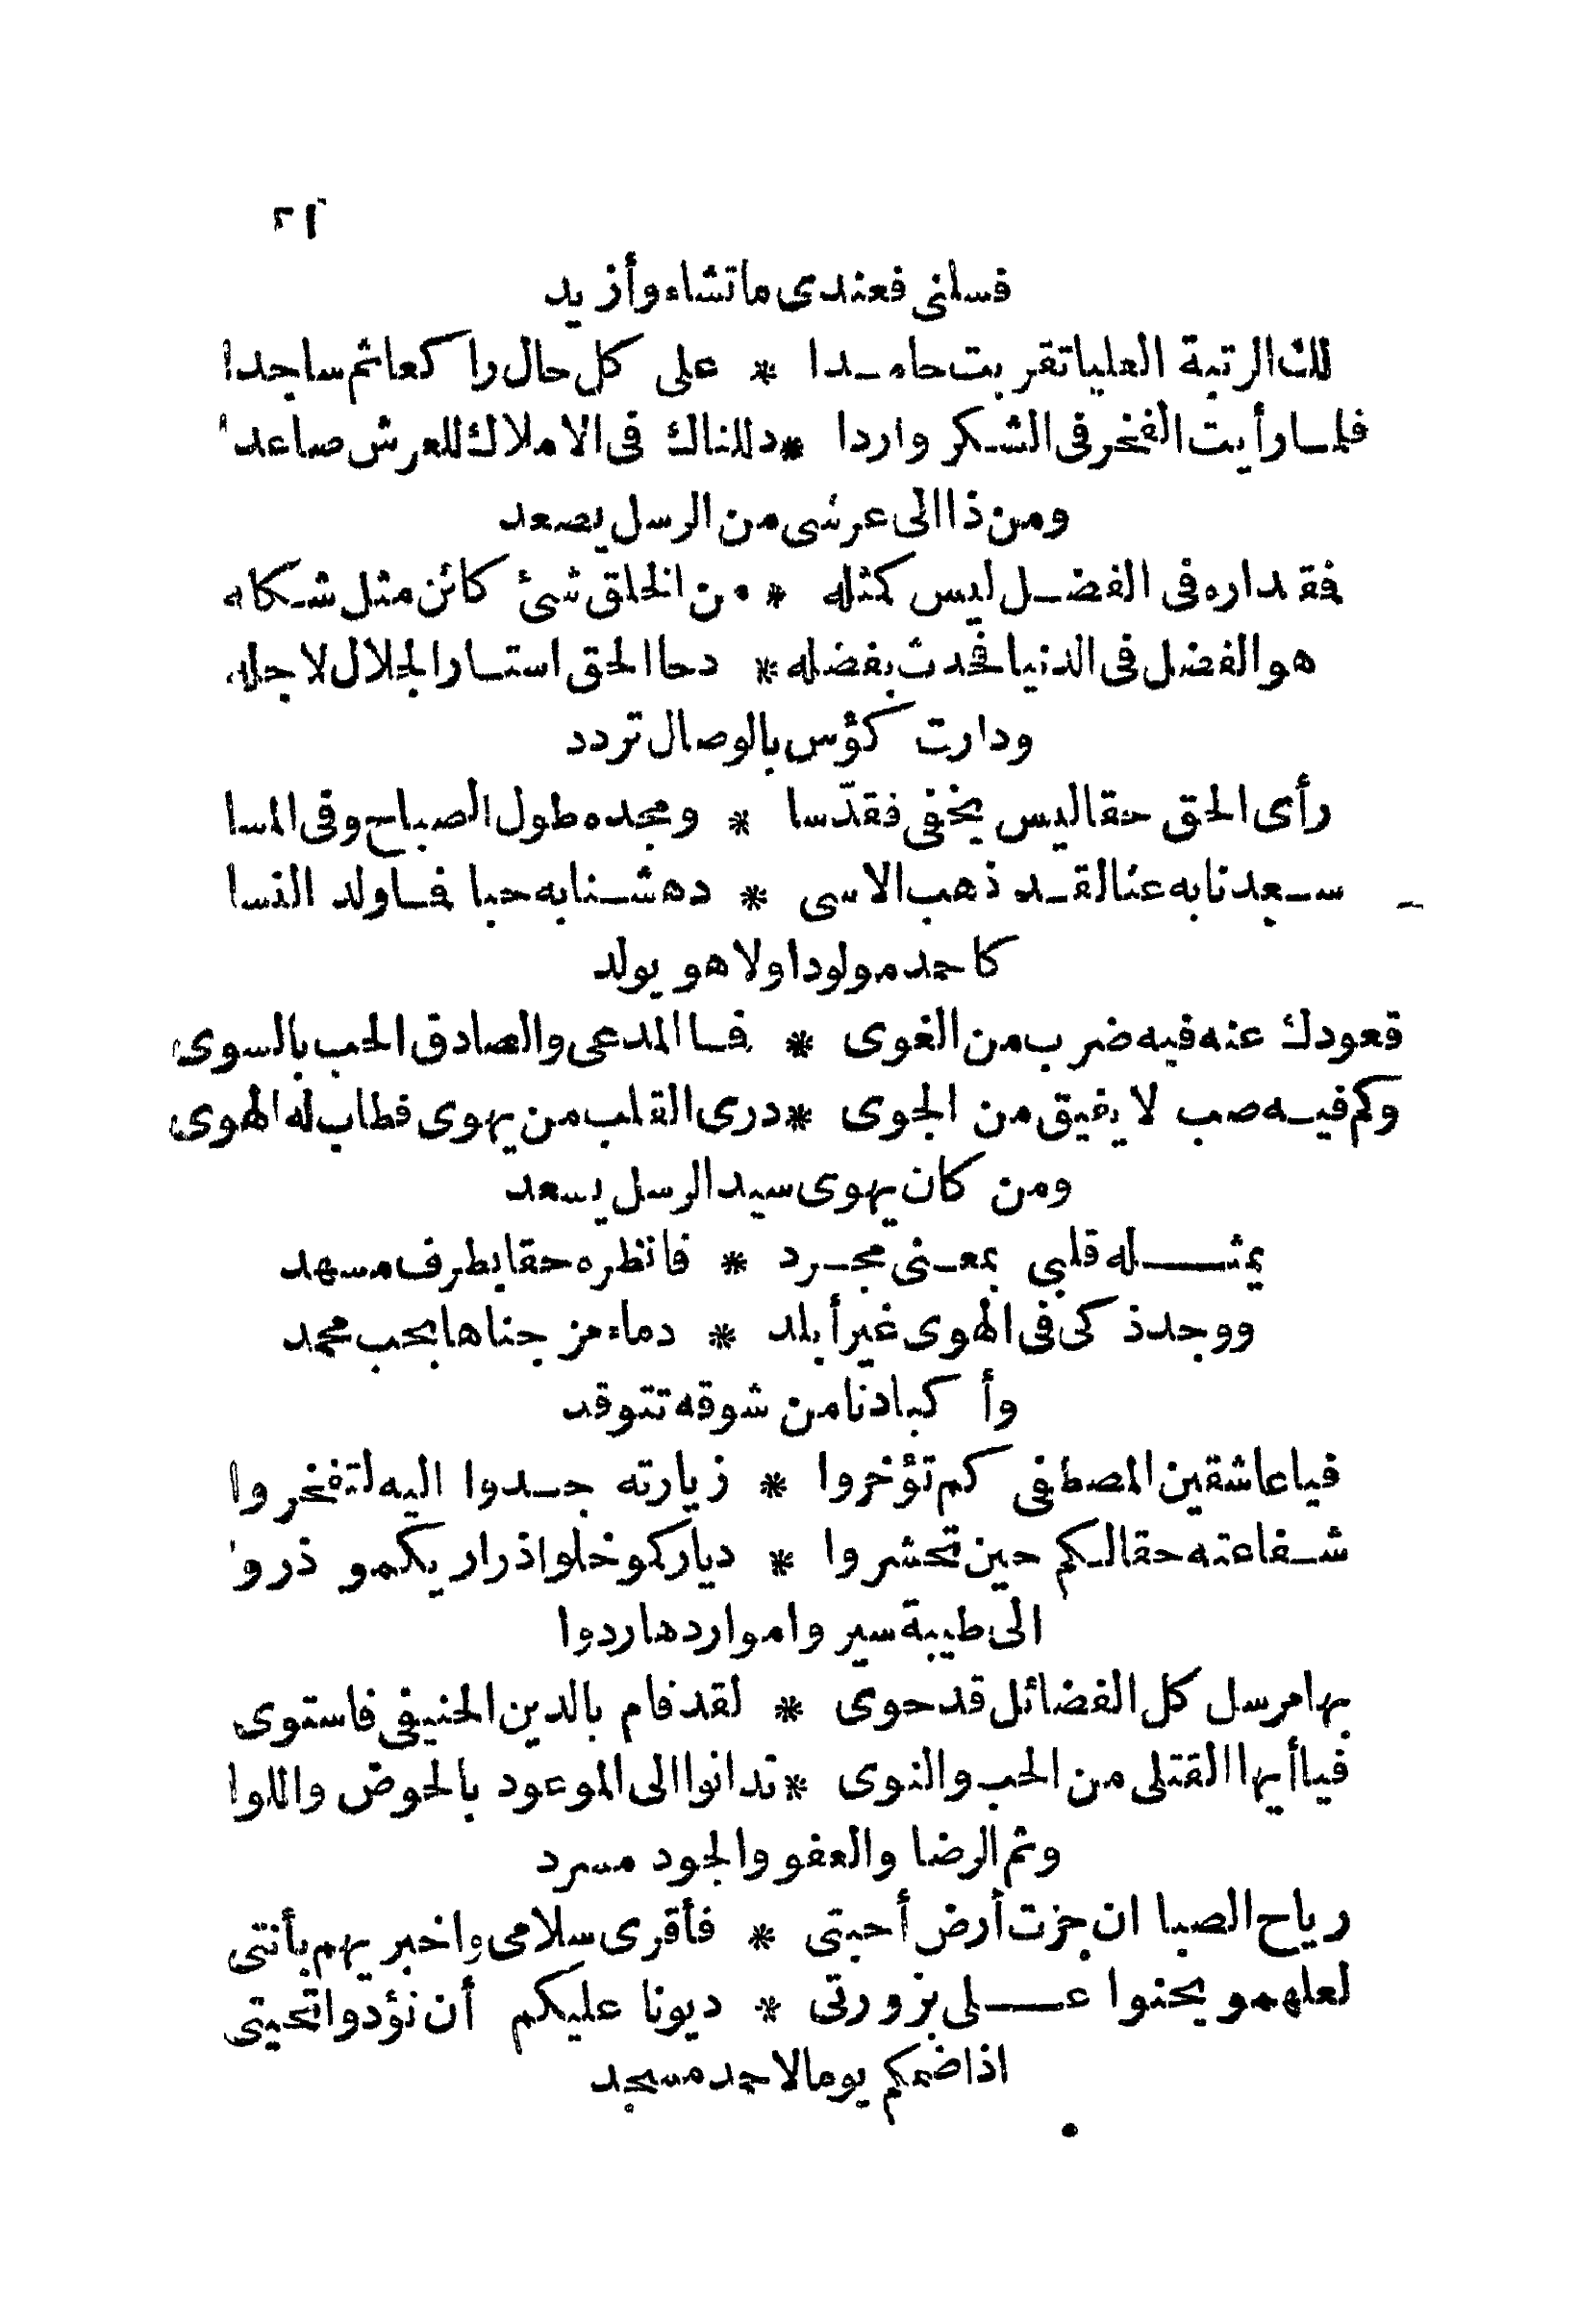 ٢١
فسلنى فعندى ماتشاء وأزيد
لك الرتبة العليا تقربت حامدا * على كل حال راكعا ثم ساجدا
فلما رأيت الفخر فى الشكر واردا * دللناك فى الاملاك للعرش صاعدا
ومن ذا الى عرشى من الرسل يصعد
فقداره فى الفضل ليس كمثله * من الخلق شئ كائن مثل شكله
هو الفضل فى الدنيا فحدث بفضله * دحا الحق استار الجلال لاجله
ودارت كؤس بالوصال تردد
رأى الحق حقا ليس يخفى فقدّسا * ومجده طول الصباح وفى المسا
سعدنا به عنا لقد ذهب الاسى * دهشنا به حبا فما ولد النسا
كاحمد مولودا ولا هو يولد
قعودك عنه فيه ضرب من الغوى * فما المدعى والصادق الحب بالسوى
وكم فيه صب لا يفيق من الجوى * درى القلب من يهوى فطاب له الهوى
ومن كان يهوى سيد الرسل يسعد
يمثله قلبى بمعنى مجرد * فانظره حقا بطرف مسهد
ووجد ذكى فى الهوى غير أبلد * دماء من جناها بحب محمد
وأكبادنا من شوقه تتوقد
فيا عاشقين المصطفى كم تؤخروا * زيارته جدوا اليه لتفخروا
شفاعته حقا لكم حين تحشروا * دياركمو خلوا ذراريكمو ذروا
الى طيبة سيروا مواردها ردوا
بها مرسل كل الفضائل قد حوى * لقد قام بالدين الحنيفى فاستوى
فيا أيها القتلى من الحب والنوى * تدانوا الى الموعود بالحوض واللوا
وثم الرضا والعفو والجود مسرد
رياح الصبا ان جزت أرض أحبتى * فأقرى سلامى واخبريهم بأنتى
لعلهمو يحنوا على بزورتى * ديونا عليكم أن نؤدوا تحيتى
اذا ضمكم يوما لاحمد مسجد